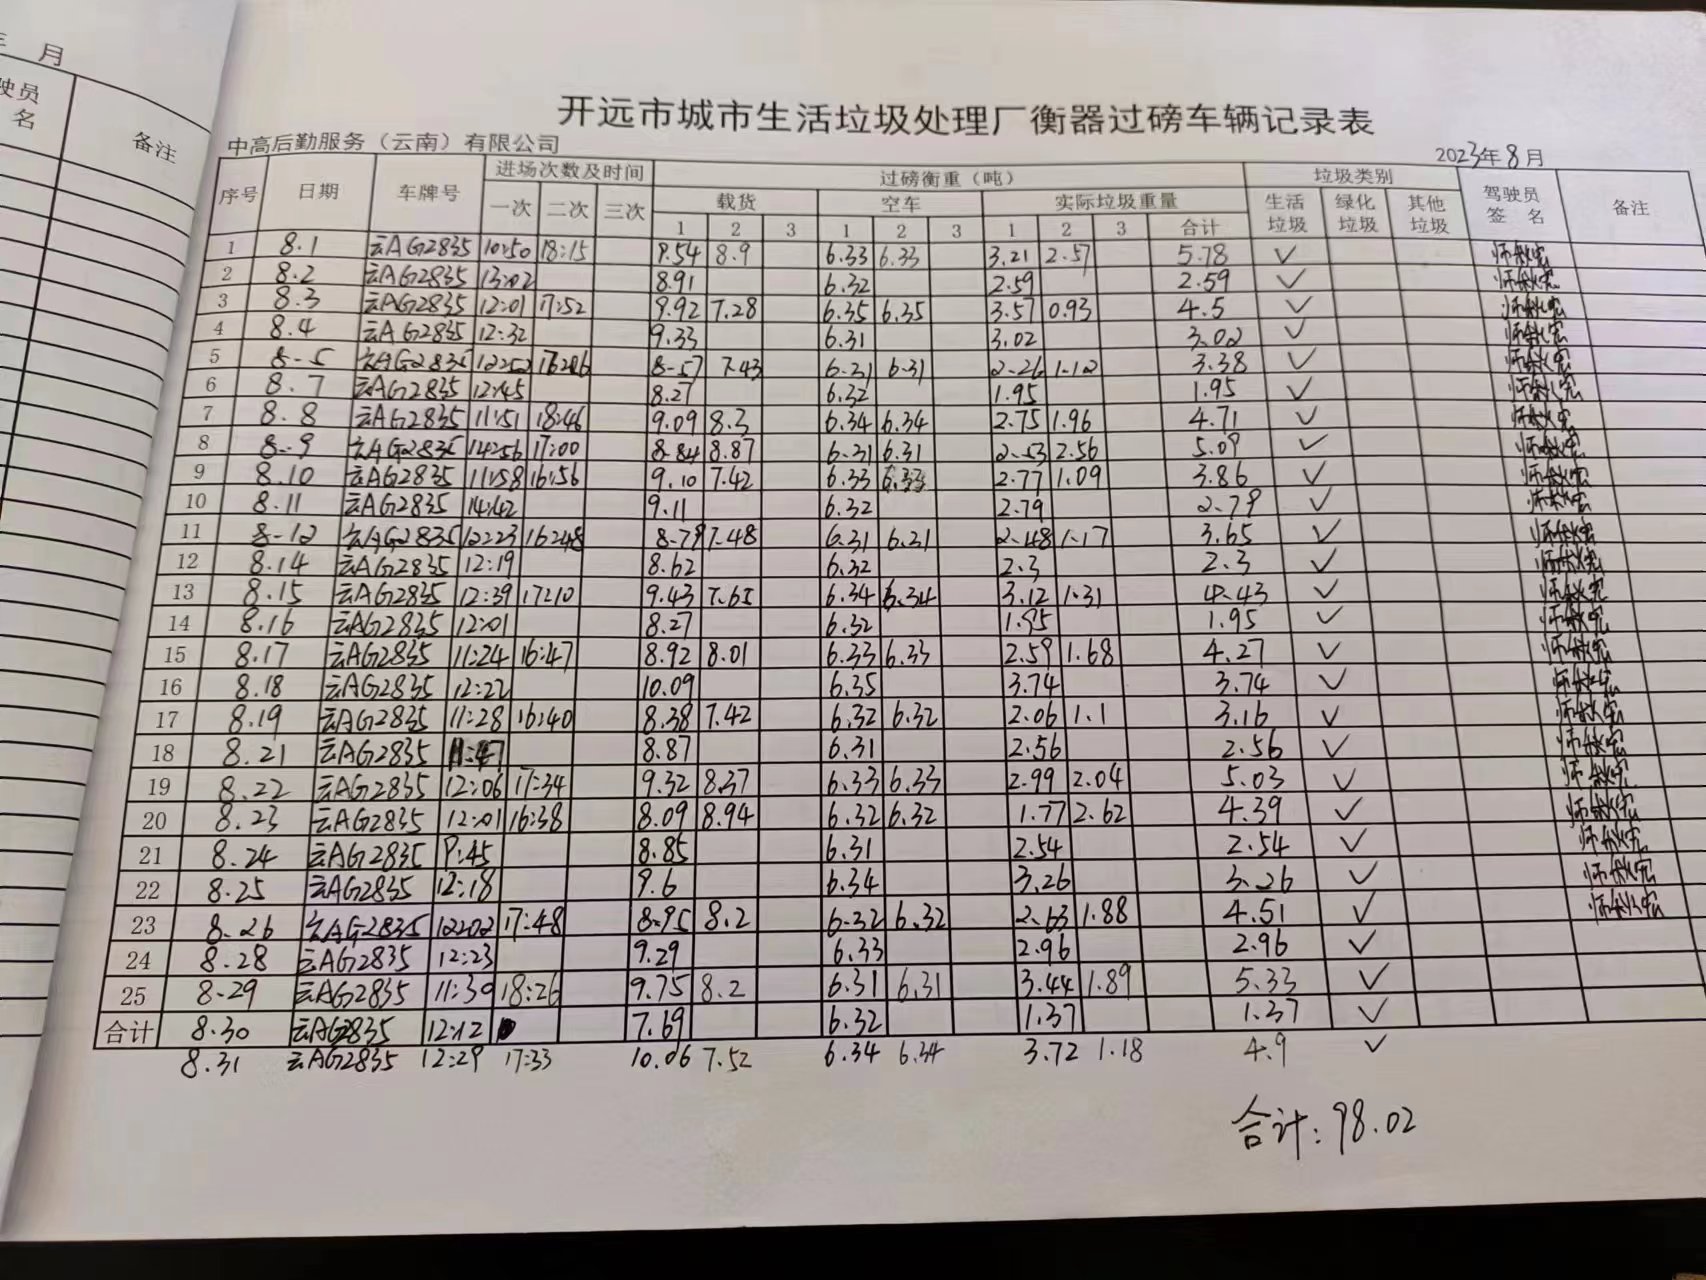 年 月
驶员
名
备注
开远市城市生活垃圾处理厂衡器过磅车辆记录表
中高后勤服务（云南）有限公司
2023年8月
序号 日期 车牌号 进场次数及时间 过磅衡重（吨） 垃圾类别 驾驶员签名 备注
一次 二次 三次 载货 空车 实际垃圾重量 生活垃圾 绿化垃圾 其他垃圾
1 2 3 1 2 3 1 2 3 合计
1 8.1 云AG2835 10:50 18:15 9.54 8.9 6.33 6.33 3.21 2.57 5.78 ✓
2 8.2 云AG2835 13:02 8.91 6.32 2.59 2.59 ✓
3 8.3 云AG2835 12:01 17:52 9.92 7.28 6.35 6.35 3.57 0.93 4.5 ✓
4 8.4 云AG2835 12:32 9.33 6.31 3.02 3.02 ✓
5 8-5 云AG2835 12:52 16:26 8-57 7.43 6.31 6.31 2-26 1.12 3.38 ✓
6 8.7 云AG2835 12:45 8.27 6.32 1.95 1.95 ✓
7 8.8 云AG2835 11:51 18:46 9.09 8.3 6.34 6.34 2.75 1.96 4.71 ✓
8 8-9 云AG2835 14:56 17:00 8.84 8.87 6.31 6.31 2.53 2.56 5.09 ✓
9 8.10 云AG2835 11:58 16:56 9.10 7.42 6.33 6.33 2.77 1.09 3.86 ✓
10 8.11 云AG2835 14:42 9.11 6.32 2.79 2.79 ✓
11 8-12 云AG2835 12:23 16:48 8.79 7.48 6.31 6.31 2.48 1.17 3.65 ✓
12 8.14 云AG2835 12:19 8.62 6.32 2.3 2.3 ✓
13 8.15 云AG2835 12:39 17:10 9.43 7.65 6.34 6.34 3.12 1.31 4.43 ✓
14 8.16 云AG2835 12:01 8.27 6.32 1.95 1.95 ✓
15 8.17 云AG2835 11:24 16:47 8.92 8.01 6.33 6.33 2.59 1.68 4.27 ✓
16 8.18 云AG2835 12:22 10.09 6.35 3.74 3.74 ✓
17 8.19 云AG2835 11:28 16:40 8.38 7.42 6.32 6.32 2.06 1.1 3.16 ✓
18 8.21 云AG2835 11:47 8.87 6.31 2.56 2.56 ✓
19 8.22 云AG2835 12:06 17:34 9.32 8.37 6.33 6.33 2.99 2.04 5.03 ✓
20 8.23 云AG2835 12:01 16:38 8.09 8.94 6.32 6.32 1.77 2.62 4.39 ✓
21 8.24 云AG2835 9:45 8.85 6.31 2.54 2.54 ✓
22 8.25 云AG2835 12:18 9.6 6.34 3.26 3.26 ✓
23 8.26 云AG2835 12:02 17:48 8.95 8.2 6.32 6.32 2.63 1.88 4.51 ✓
24 8.28 云AG2835 12:23 9.29 6.33 2.96 2.96 ✓
25 8.29 云AG2835 11:30 18:26 9.75 8.2 6.31 6.31 3.44 1.89 5.33 ✓
合计 8.30 云AG2835 12:12 7.69 6.32 1.37 1.37 ✓
8.31 云AG2835 12:29 17:33 10.06 7.52 6.34 6.34 3.72 1.18 4.9 ✓
合计: 98.02